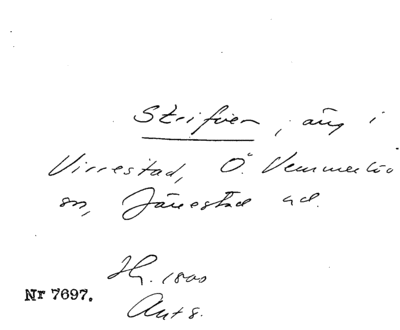 Strifven, äng i
Virrestad, Ö. Vemmerlöv
sn, Järrestad hd.
Hg. 1800
Nr 7697.
Ant 8.